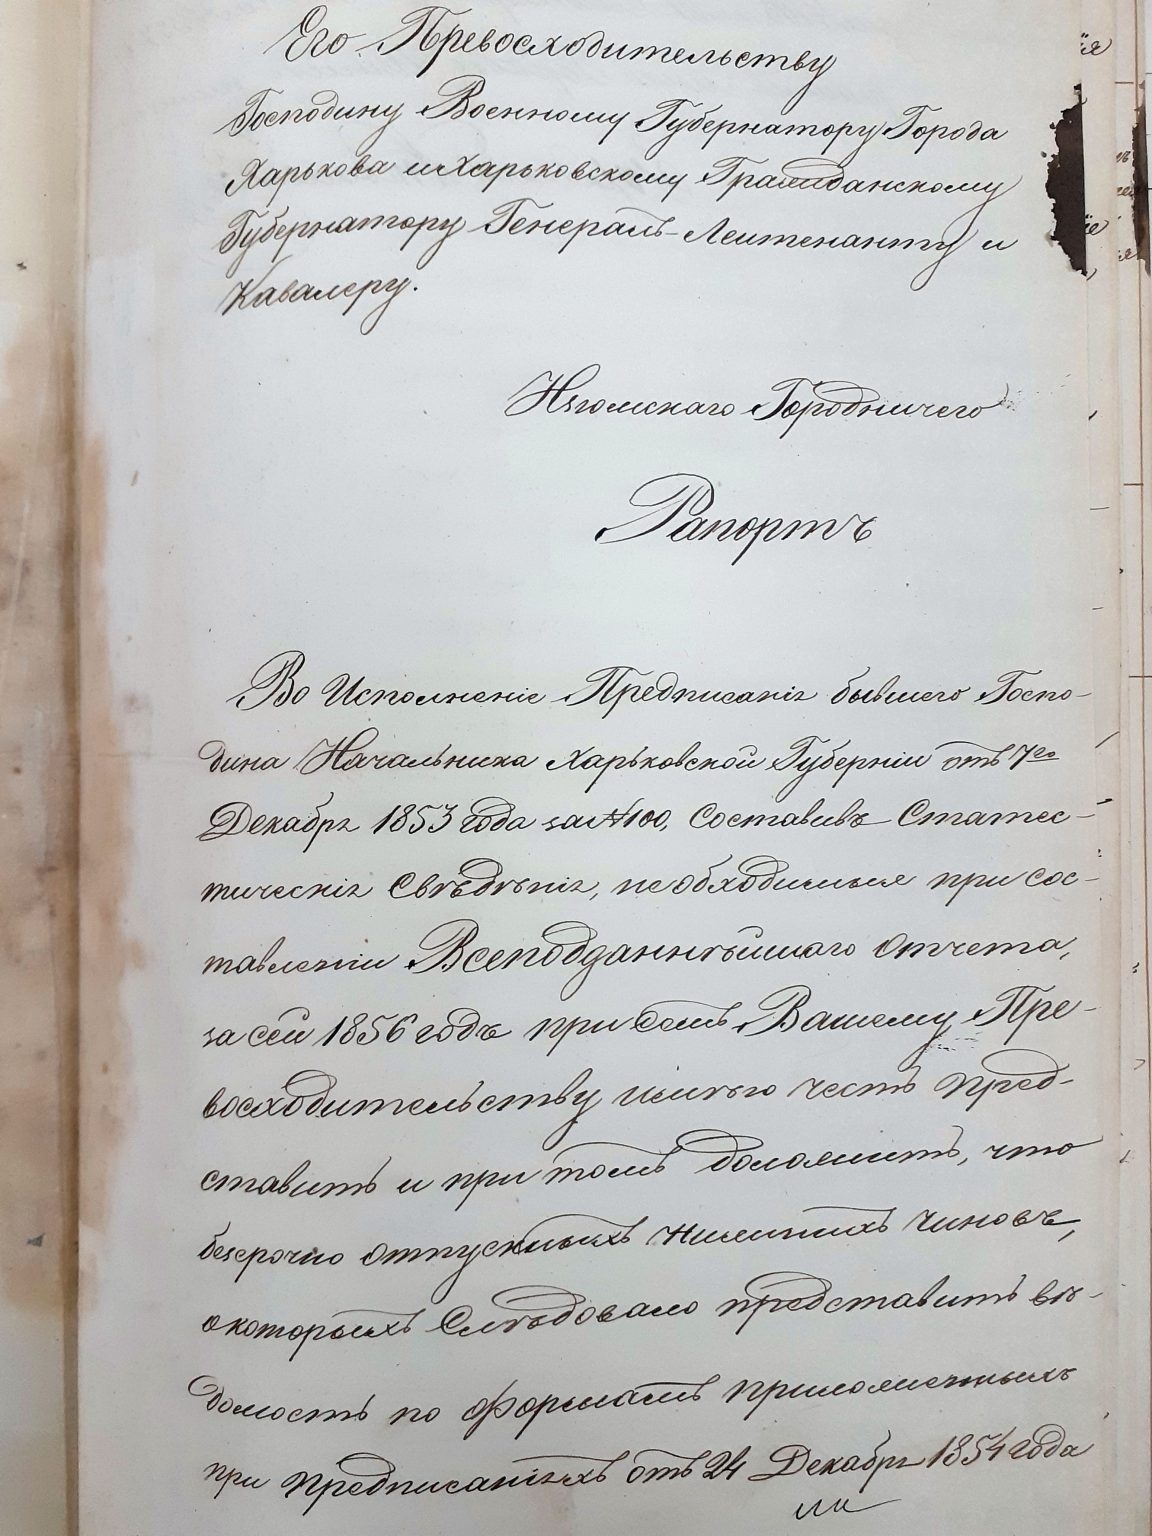 Его Превосходительству
Господину Военному Губернатору Города
Харькова и Харьковскому Гражданскому
Губернатору Генералъ-Лейтенанту и
Кавалеру.
Городничего
Рапортъ
Во Исполненіе Предписанія бывшего Госпо-
дина Начальника Харьковской Губерніи отъ 7го
Декабря 1853 года за №100, Составивъ Статес-
тическія Свѣдѣнія, необходимыя при сос-
тавленіи Всеподданнѣйшаго отчета,
за сей 1856 годъ при семъ Вашему Пре-
восходительству имѣю честь пред-
ставить и при томъ доложить, что
безсрочно отпускныхъ Нижнихъ Чиновъ,
о которыхъ Слѣдовало представить вѣ-
домость по формамъ приложеннымъ
при предписаніяхъ отъ 24 Декабря 1854 года